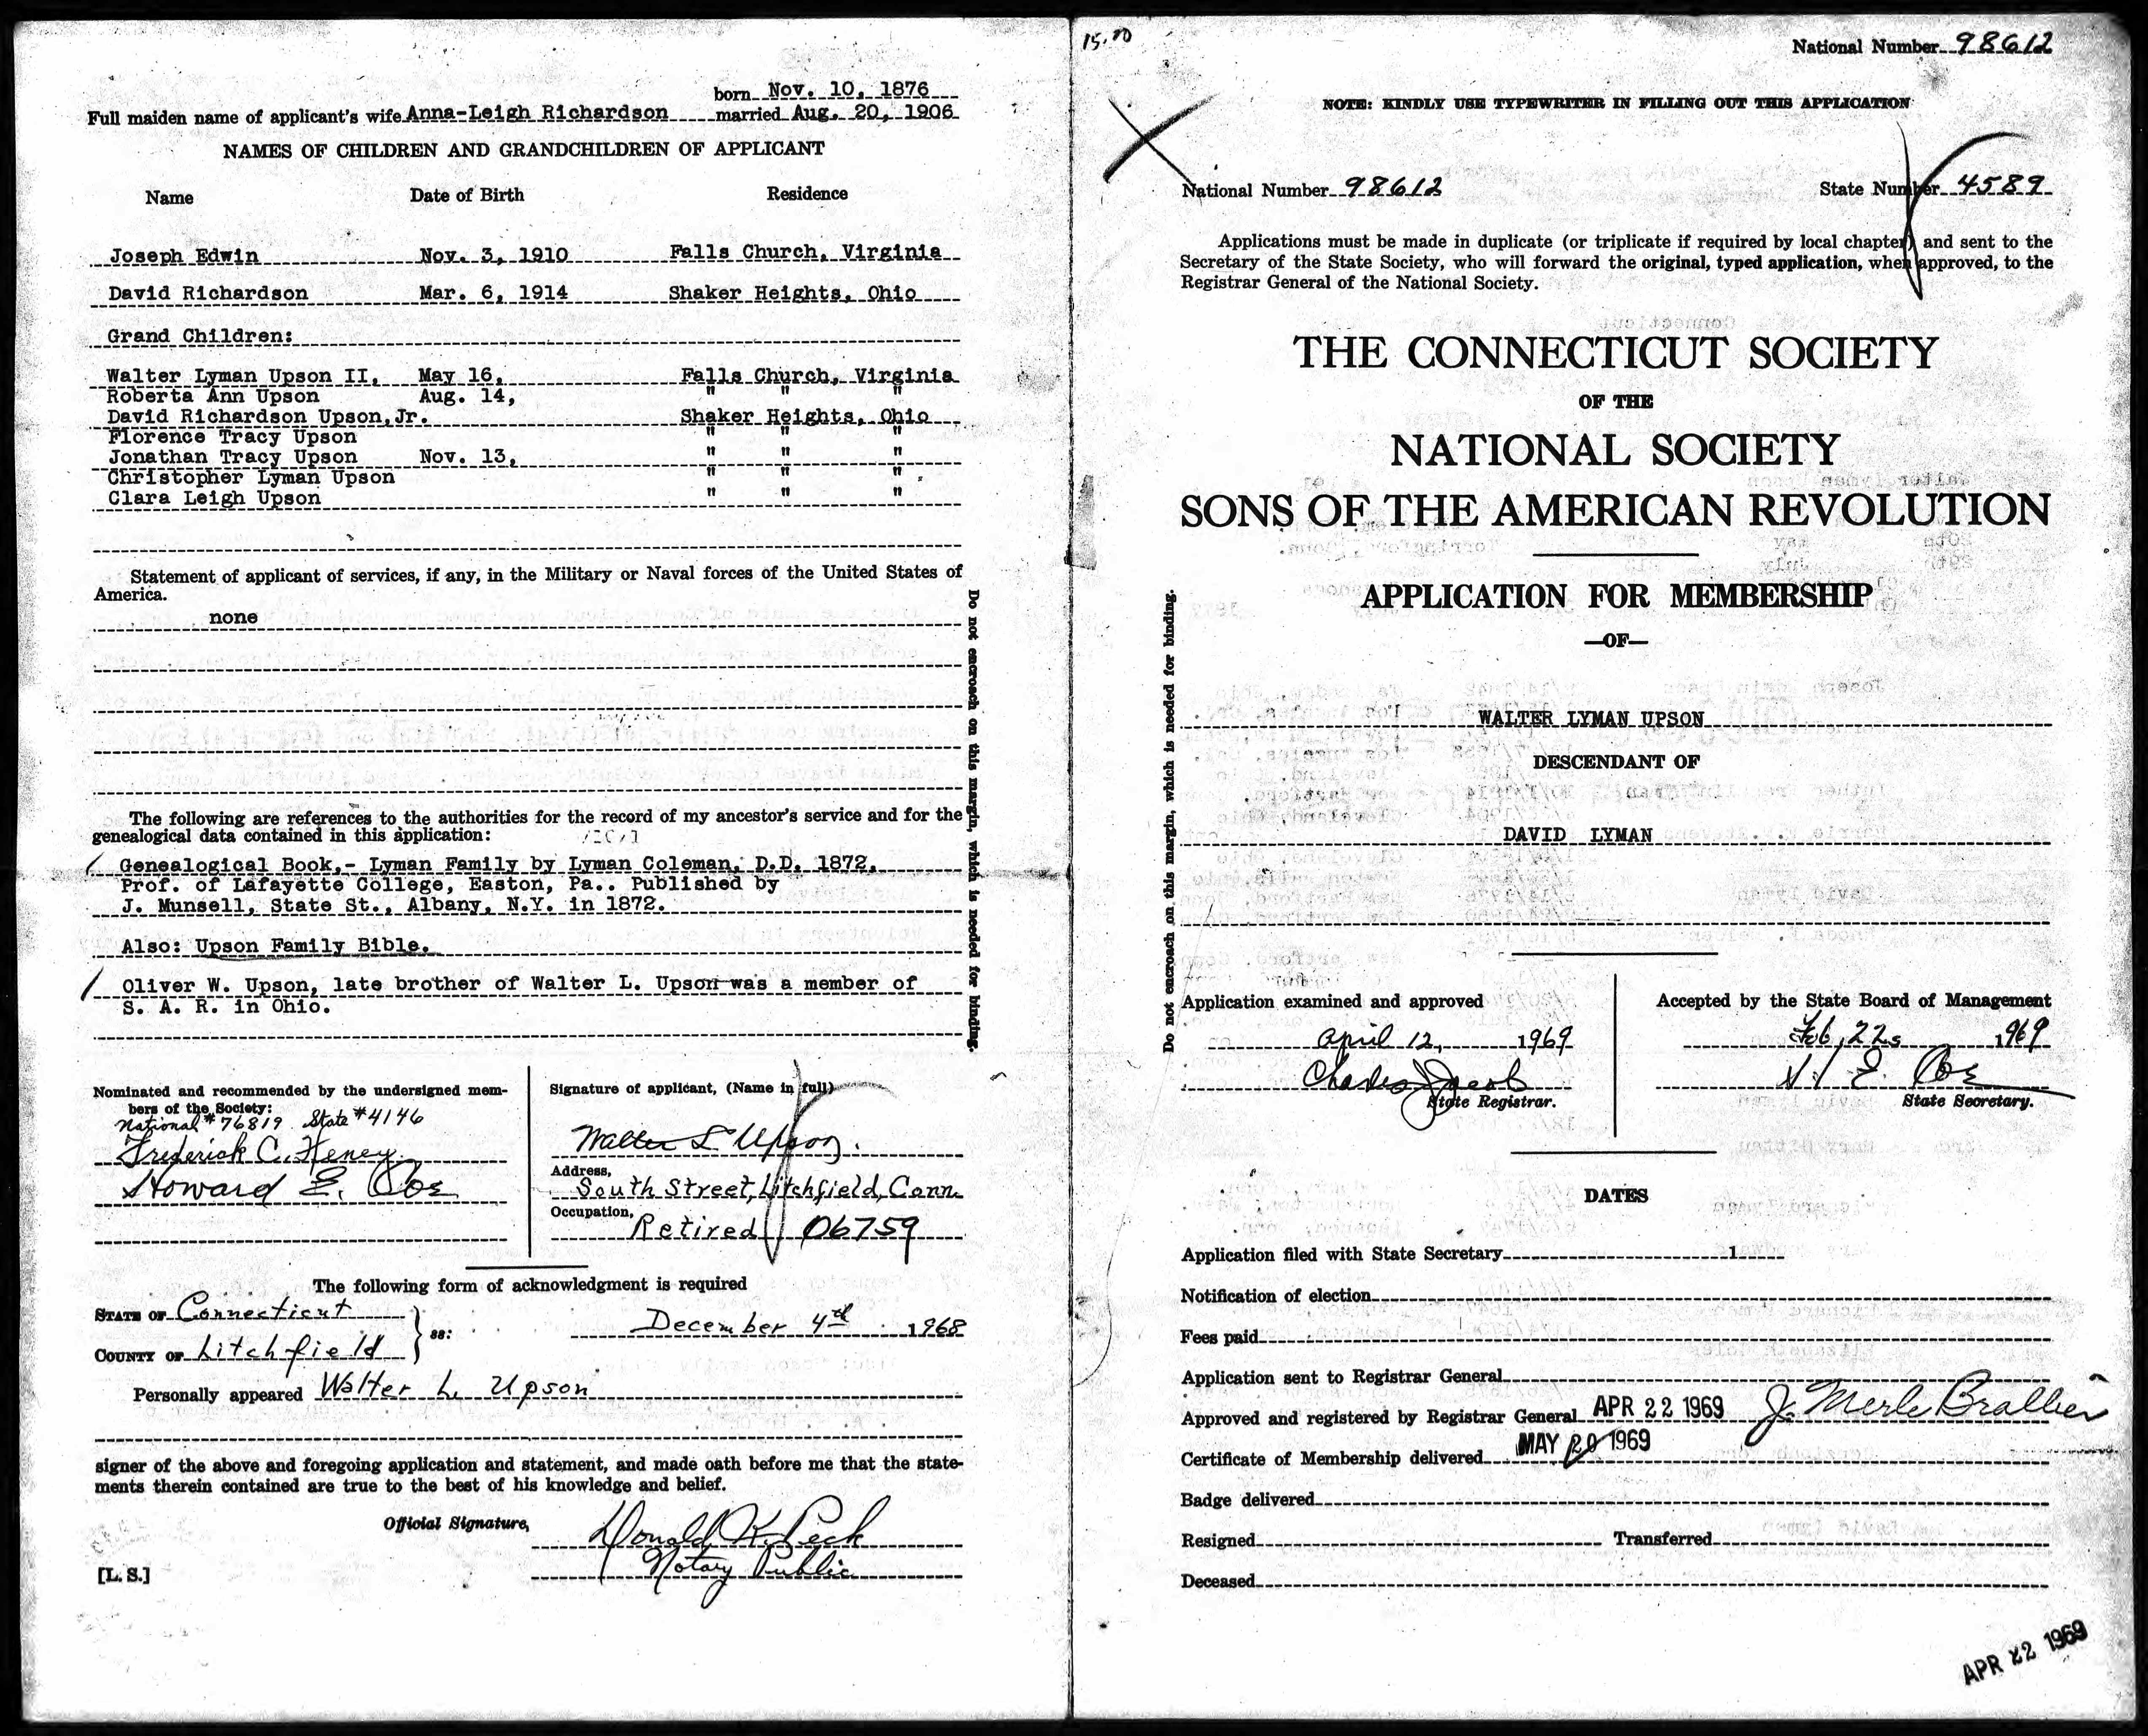 born Nov. 10, 1876
Full maiden name of applicant's wife Anna-Leigh Richardson married Aug. 20, 1906
NAMES OF CHILDREN AND GRANDCHILDREN OF APPLICANT
Name Date of Birth Residence
Joseph Edwin Nov. 3, 1910 Falls Church, Virginia
David Richardson Mar. 6, 1914 Shaker Heights, Ohio
Grand Children:
Walter Lyman Upson II, May 16, Falls Church, Virginia
Roberta Ann Upson Aug. 14, " " "
David Richardson Upson, Jr. Shaker Heights, Ohio
Florence Tracy Upson " " "
Jonathan Tracy Upson Nov. 13, " " "
Christopher Lyman Upson " " "
Clara Leigh Upson " " "
Statement of applicant of services, if any, in the Military or Naval forces of the United States of
America.
none
The following are references to the authorities for the record of my ancestor's service and for the
genealogical data contained in this application:
Genealogical Book,- Lyman Family by Lyman Coleman, D.D. 1872,
Prof. of Lafayette College, Easton, Pa.. Published by
J. Munsell, State St., Albany, N.Y. in 1872.
Also: Upson Family Bible.
Oliver W. Upson, late brother of Walter L. Upson was a member of
S. A. R. in Ohio.
Do not encroach on this margin, which is needed for binding.
Nominated and recommended by the undersigned mem-
bers of the Society:
National #76819 State #4146
Frederick C. Heney.
Howard E. Coe
Signature of applicant, (Name in full)
Walter L Upson.
Address,
South Street, Litchfield, Conn.
Occupation,
Retired 06759
The following form of acknowledgment is required
STATE OF Connecticut
COUNTY OF Litchfield
} ss:
December 4th 1968
Personally appeared Walter L. Upson
signer of the above and foregoing application and statement, and made oath before me that the state-
ments therein contained are true to the best of his knowledge and belief.
Official Signature, Donald K. Peck
Notary Public
[L. S.]
15.00
National Number 98612
NOTE: KINDLY USE TYPEWRITER IN FILLING OUT THIS APPLICATION
National Number 98612 State Number 4589
Applications must be made in duplicate (or triplicate if required by local chapter) and sent to the
Secretary of the State Society, who will forward the original, typed application, when approved, to the
Registrar General of the National Society.
THE CONNECTICUT SOCIETY
OF THE
NATIONAL SOCIETY
SONS OF THE AMERICAN REVOLUTION
APPLICATION FOR MEMBERSHIP
—OF—
WALTER LYMAN UPSON
DESCENDANT OF
DAVID LYMAN
Do not encroach on this margin, which is needed for binding.
Application examined and approved
April 12, 1969
Charles Jacob
State Registrar.
Accepted by the State Board of Management
Feb, 22, 1969
H E. Coe
State Secretary.
DATES
Application filed with State Secretary 1
Notification of election
Fees paid
Application sent to Registrar General
Approved and registered by Registrar General APR 22 1969 J. Merle Brallier
Certificate of Membership delivered MAY 20 1969
Badge delivered
Resigned Transferred
Deceased
APR 22 1969